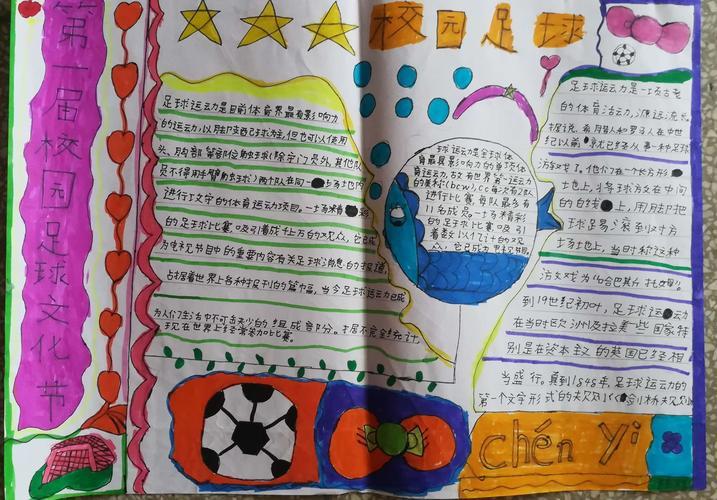 第一届校园足球文化节
校园足球
足球运动是目前体育界最有影响力
的运动,以脚支配球为主,但也可以使用
头、胸部等部位触球(除守门员外,其他队
员不得用手臂触球)两个队在同一场地内
进行攻守的体育运动项目。一场精彩
的足球比赛,吸引着成千上万的观众,它已成
为电视节目中的重要内容有关足球消息的报道,
占据着世界上各种报刊的篇幅,当今足球运动已成
为人们生活中不可缺少的组成部分。据不完全统计,
现在世界上经常参加比赛。
球运动是全球体
育最具影响力的单项体
育运动,故有世界第一运动
的美称(bcw),cc每次有2队
进行比赛每队最多有
11名成员。一场精彩
的足球比赛吸引
着数以亿计的观
众,它已成为电视节目
足球运动是一场古老
的体育活动,源远流长。
据说,希腊人和罗马人在中世
纪以前就已经从事一种足球
游戏了。他们在一个长方形
地上,将球放在中间
的白线上,用脚把
球踢滚到对方
场地上,当时称这种
游戏为“哈巴斯托姆”
到19世纪初叶,足球运动
在当时欧洲及拉美一些国家特
别是在资本主义的英国已经相
当盛行。直到1848年,足球运动的
第一个文字形式的规则《剑桥规则
chén yi